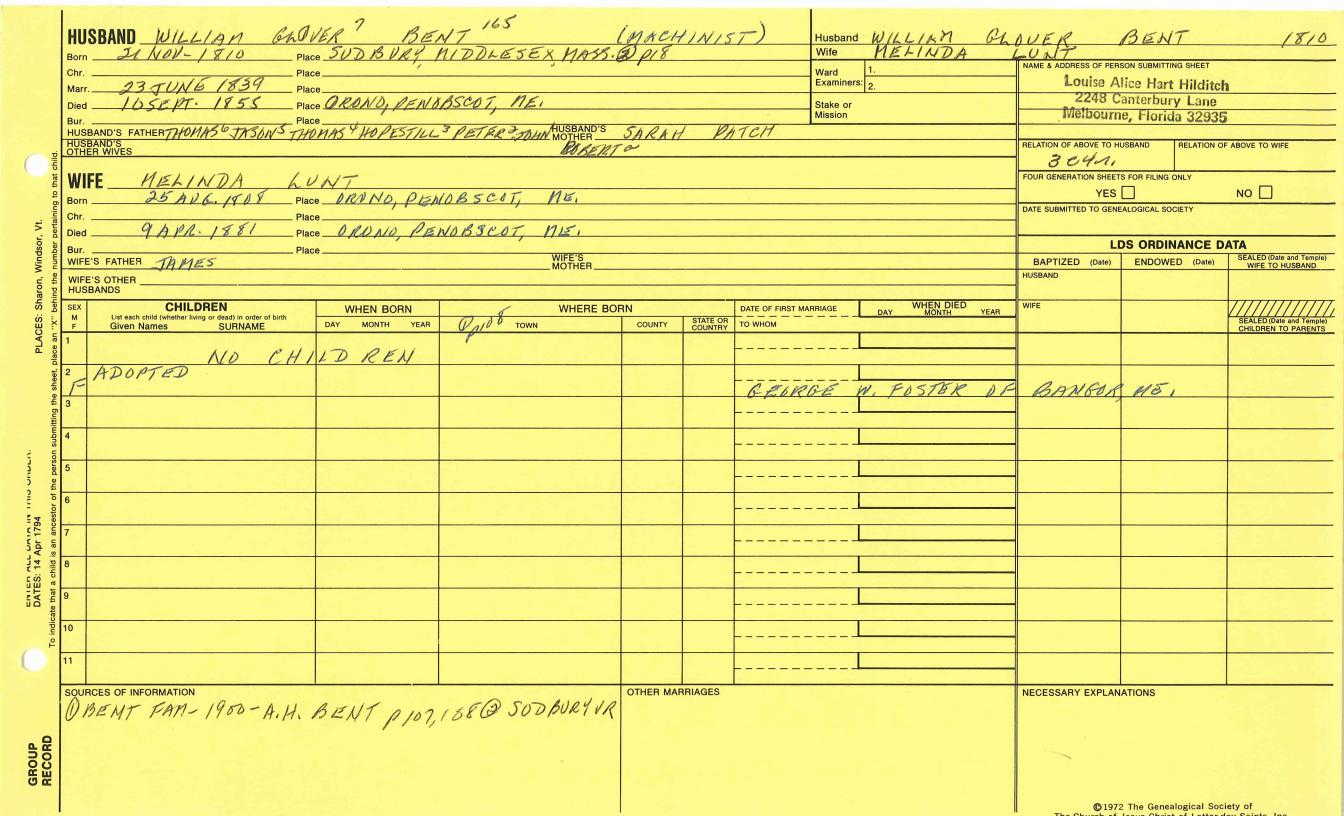 HUSBAND WILLIAM GLOVER 7 BENT 165 (MACHINIST)
Born 21 NOV- 1810 Place SUDBURY, MIDDLESEX, MASS. ② p18
Chr. Place
Marr. 23 JUNE 1839 Place
Died 16 SEPT. 1855 Place ORONO, PENOBSCOT, ME.
Bur. Place
HUSBAND'S FATHER THOMAS 6 JASON 5 THOMAS 4 HOPESTILL 3 PETER 2 JOHN HUSBAND'S MOTHER SARAH PATCH
HUSBAND'S OTHER WIVES ROBERT
Husband WILLIAM GLOVER BENT 1810
Wife MELINDA LUNT
Ward Examiners: 1.
2.
Stake or Mission
NAME & ADDRESS OF PERSON SUBMITTING SHEET
Louise Alice Hart Hilditch
2248 Canterbury Lane
Melbourne, Florida 32935
RELATION OF ABOVE TO HUSBAND RELATION OF ABOVE TO WIFE
3C4r.
FOUR GENERATION SHEETS FOR FILING ONLY
YES NO
DATE SUBMITTED TO GENEALOGICAL SOCIETY
WIFE MELINDA LUNT
Born 25 AUG. 1808 Place ORONO, PENOBSCOT, ME.
Chr. Place
Died 9 APR. 1881 Place ORONO, PENOBSCOT, ME.
Bur. Place
WIFE'S FATHER JAMES WIFE'S MOTHER
WIFE'S OTHER HUSBANDS
LDS ORDINANCE DATA
BAPTIZED (Date) ENDOWED (Date) SEALED (Date and Temple) WIFE TO HUSBAND
HUSBAND
WIFE
SEALED (Date and Temple) CHILDREN TO PARENTS
SEX M F
CHILDREN
List each child (whether living or dead) in order of birth
Given Names SURNAME
WHEN BORN
DAY MONTH YEAR
WHERE BORN
① p108 TOWN COUNTY STATE OR COUNTRY
DATE OF FIRST MARRIAGE
TO WHOM
WHEN DIED
DAY MONTH YEAR
1 NO CHILDREN
2 F ADOPTED GEORGE W. FOSTER OF BANGOR, ME.
3
4
5
6
7
8
9
10
11
SOURCES OF INFORMATION
① BENT FAM- 1900- A.H. BENT p 107, 108 ② SUDBURY VR
OTHER MARRIAGES
NECESSARY EXPLANATIONS
©1972 The Genealogical Society of
The Church of Jesus Christ of Latter-day Saints, Inc.
PLACES: Sharon, Windsor, Vt.
ENTER ALL DATA IN THIS ORDER:
DATES: 14 Apr 1794
To indicate that a child is an ancestor of the person submitting the sheet, place an "X" behind the number pertaining to that child.
GROUP RECORD